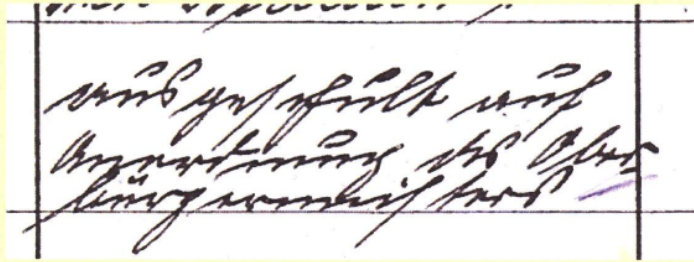 ausgeschult auf
Anordnung des Ober
bürgermeisters